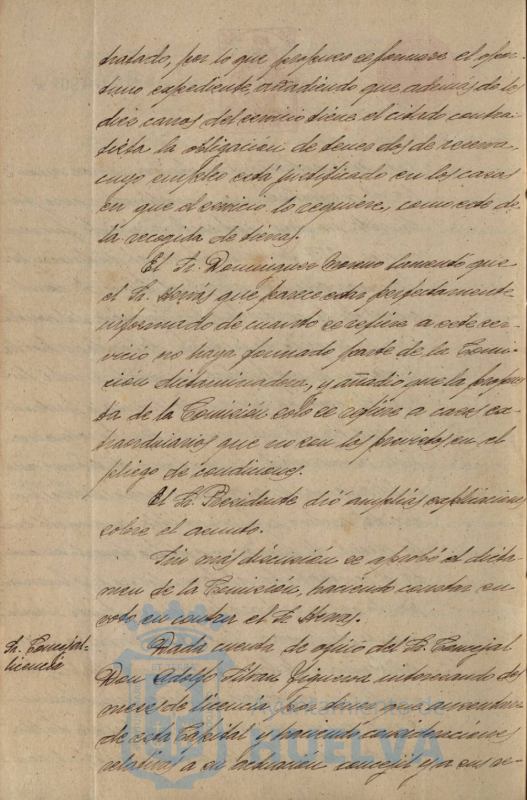 tratado, por lo que propuso se formase el opor-
tuno expediente, añadiendo que además de los
diez carros del servicio tiene el citado contra-
tista la obligación de tener dos de reserva
cuyo empleo está justificado en los casos
en que el servicio lo requiere, como este de
la recogida de tierras.
El Sr. Dominguez Moreno lamentó que
el Sr. Herras que parece estar perfectamente
informado de cuanto se refiere a este ser-
vicio no haya formado parte de la Comi-
sion dictaminadora, y añadió que la propues-
ta de la Comisión solo se refiere a casos ex-
traordinarios que no son los previstos en el
pliego de condiciones.
El Sr. Presidente dió amplias explicaciones
sobre el asunto.
Sin más discusión se aprobó el dicta-
men de la Comisión, haciendo constar su
voto en contra el Sr. Herras.
Sr. Concejal-
licencia
Dada cuenta de oficio del Sr. Concejal
Don Adolfo Figueroa interesando dos
meses de licencia, por tener que ausentarse
de esta Capital y haciendo consideraciones
relativas a su actuación concejil y a sus re-
Ayuntamiento de
HUELVA